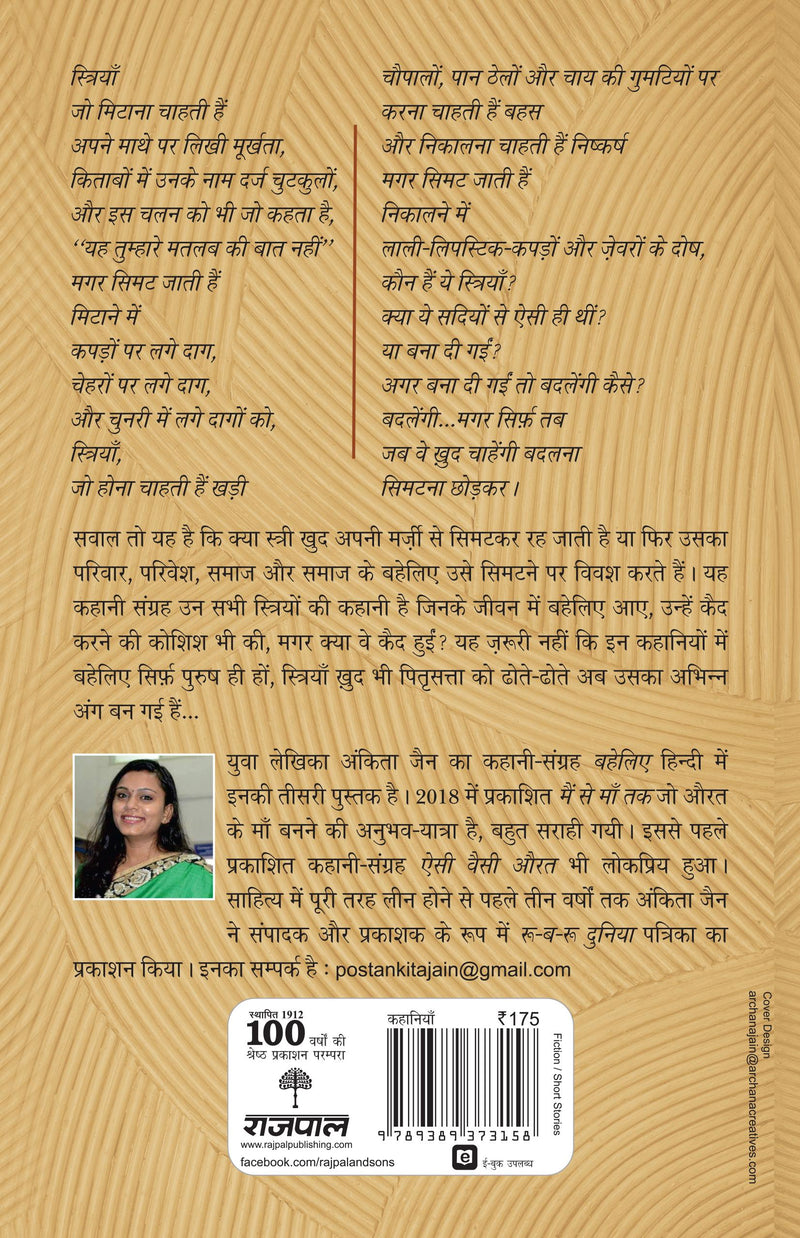 स्त्रियाँ
जो मिटाना चाहती हैं
अपने माथे पर लिखी मूर्खता,
किताबों में उनके नाम दर्ज चुटकुलों,
और इस चलन को भी जो कहता है,
“यह तुम्हारे मतलब की बात नहीं”
मगर सिमट जाती हैं
मिटाने में
कपड़ों पर लगे दाग,
चेहरों पर लगे दाग,
और चुनरी में लगे दागों को,
स्त्रियाँ,
जो होना चाहती हैं खड़ी
चौपालों, पान ठेलों और चाय की गुमटियों पर
करना चाहती हैं बहस
और निकालना चाहती हैं निष्कर्ष
मगर सिमट जाती हैं
निकालने में
लाली-लिपस्टिक-कपड़ों और ज़ेवरों के दोष,
कौन हैं ये स्त्रियाँ?
क्या ये सदियों से ऐसी ही थीं?
या बना दी गईं?
अगर बना दी गईं तो बदलेंगी कैसे?
बदलेंगी...मगर सिर्फ़ तब
जब वे ख़ुद चाहेंगी बदलना
सिमटना छोड़कर।
सवाल तो यह है कि क्या स्त्री खुद अपनी मर्ज़ी से सिमटकर रह जाती है या फिर उसका
परिवार, परिवेश, समाज और समाज के बहेलिए उसे सिमटने पर विवश करते हैं। यह
कहानी संग्रह उन सभी स्त्रियों की कहानी है जिनके जीवन में बहेलिए आए, उन्हें कैद
करने की कोशिश भी की, मगर क्या वे कैद हुईं? यह ज़रूरी नहीं कि इन कहानियों में
बहेलिए सिर्फ़ पुरुष ही हों, स्त्रियाँ ख़ुद भी पितृसत्ता को ढोते-ढोते अब उसका अभिन्न
अंग बन गई हैं...
युवा लेखिका अंकिता जैन का कहानी-संग्रह बहेलिए हिन्दी में
इनकी तीसरी पुस्तक है। 2018 में प्रकाशित मैं से माँ तक जो औरत
के माँ बनने की अनुभव-यात्रा है, बहुत सराही गयी। इससे पहले
प्रकाशित कहानी-संग्रह ऐसी वैसी औरत भी लोकप्रिय हुआ।
साहित्य में पूरी तरह लीन होने से पहले तीन वर्षों तक अंकिता जैन
ने संपादक और प्रकाशक के रूप में रू-ब-रू दुनिया पत्रिका का
प्रकाशन किया। इनका सम्पर्क है : postankitajain@gmail.com
स्थापित 1912
100 वर्षों की
श्रेष्ठ प्रकाशन परम्परा
राजपाल
www.rajpalpublishing.com
facebook.com/rajpalandsons
कहानियाँ ₹175
Fiction / Short Stories
9 789389 373158
e ई-बुक उपलब्ध
Cover Design
archanajain@archanacreatives.com